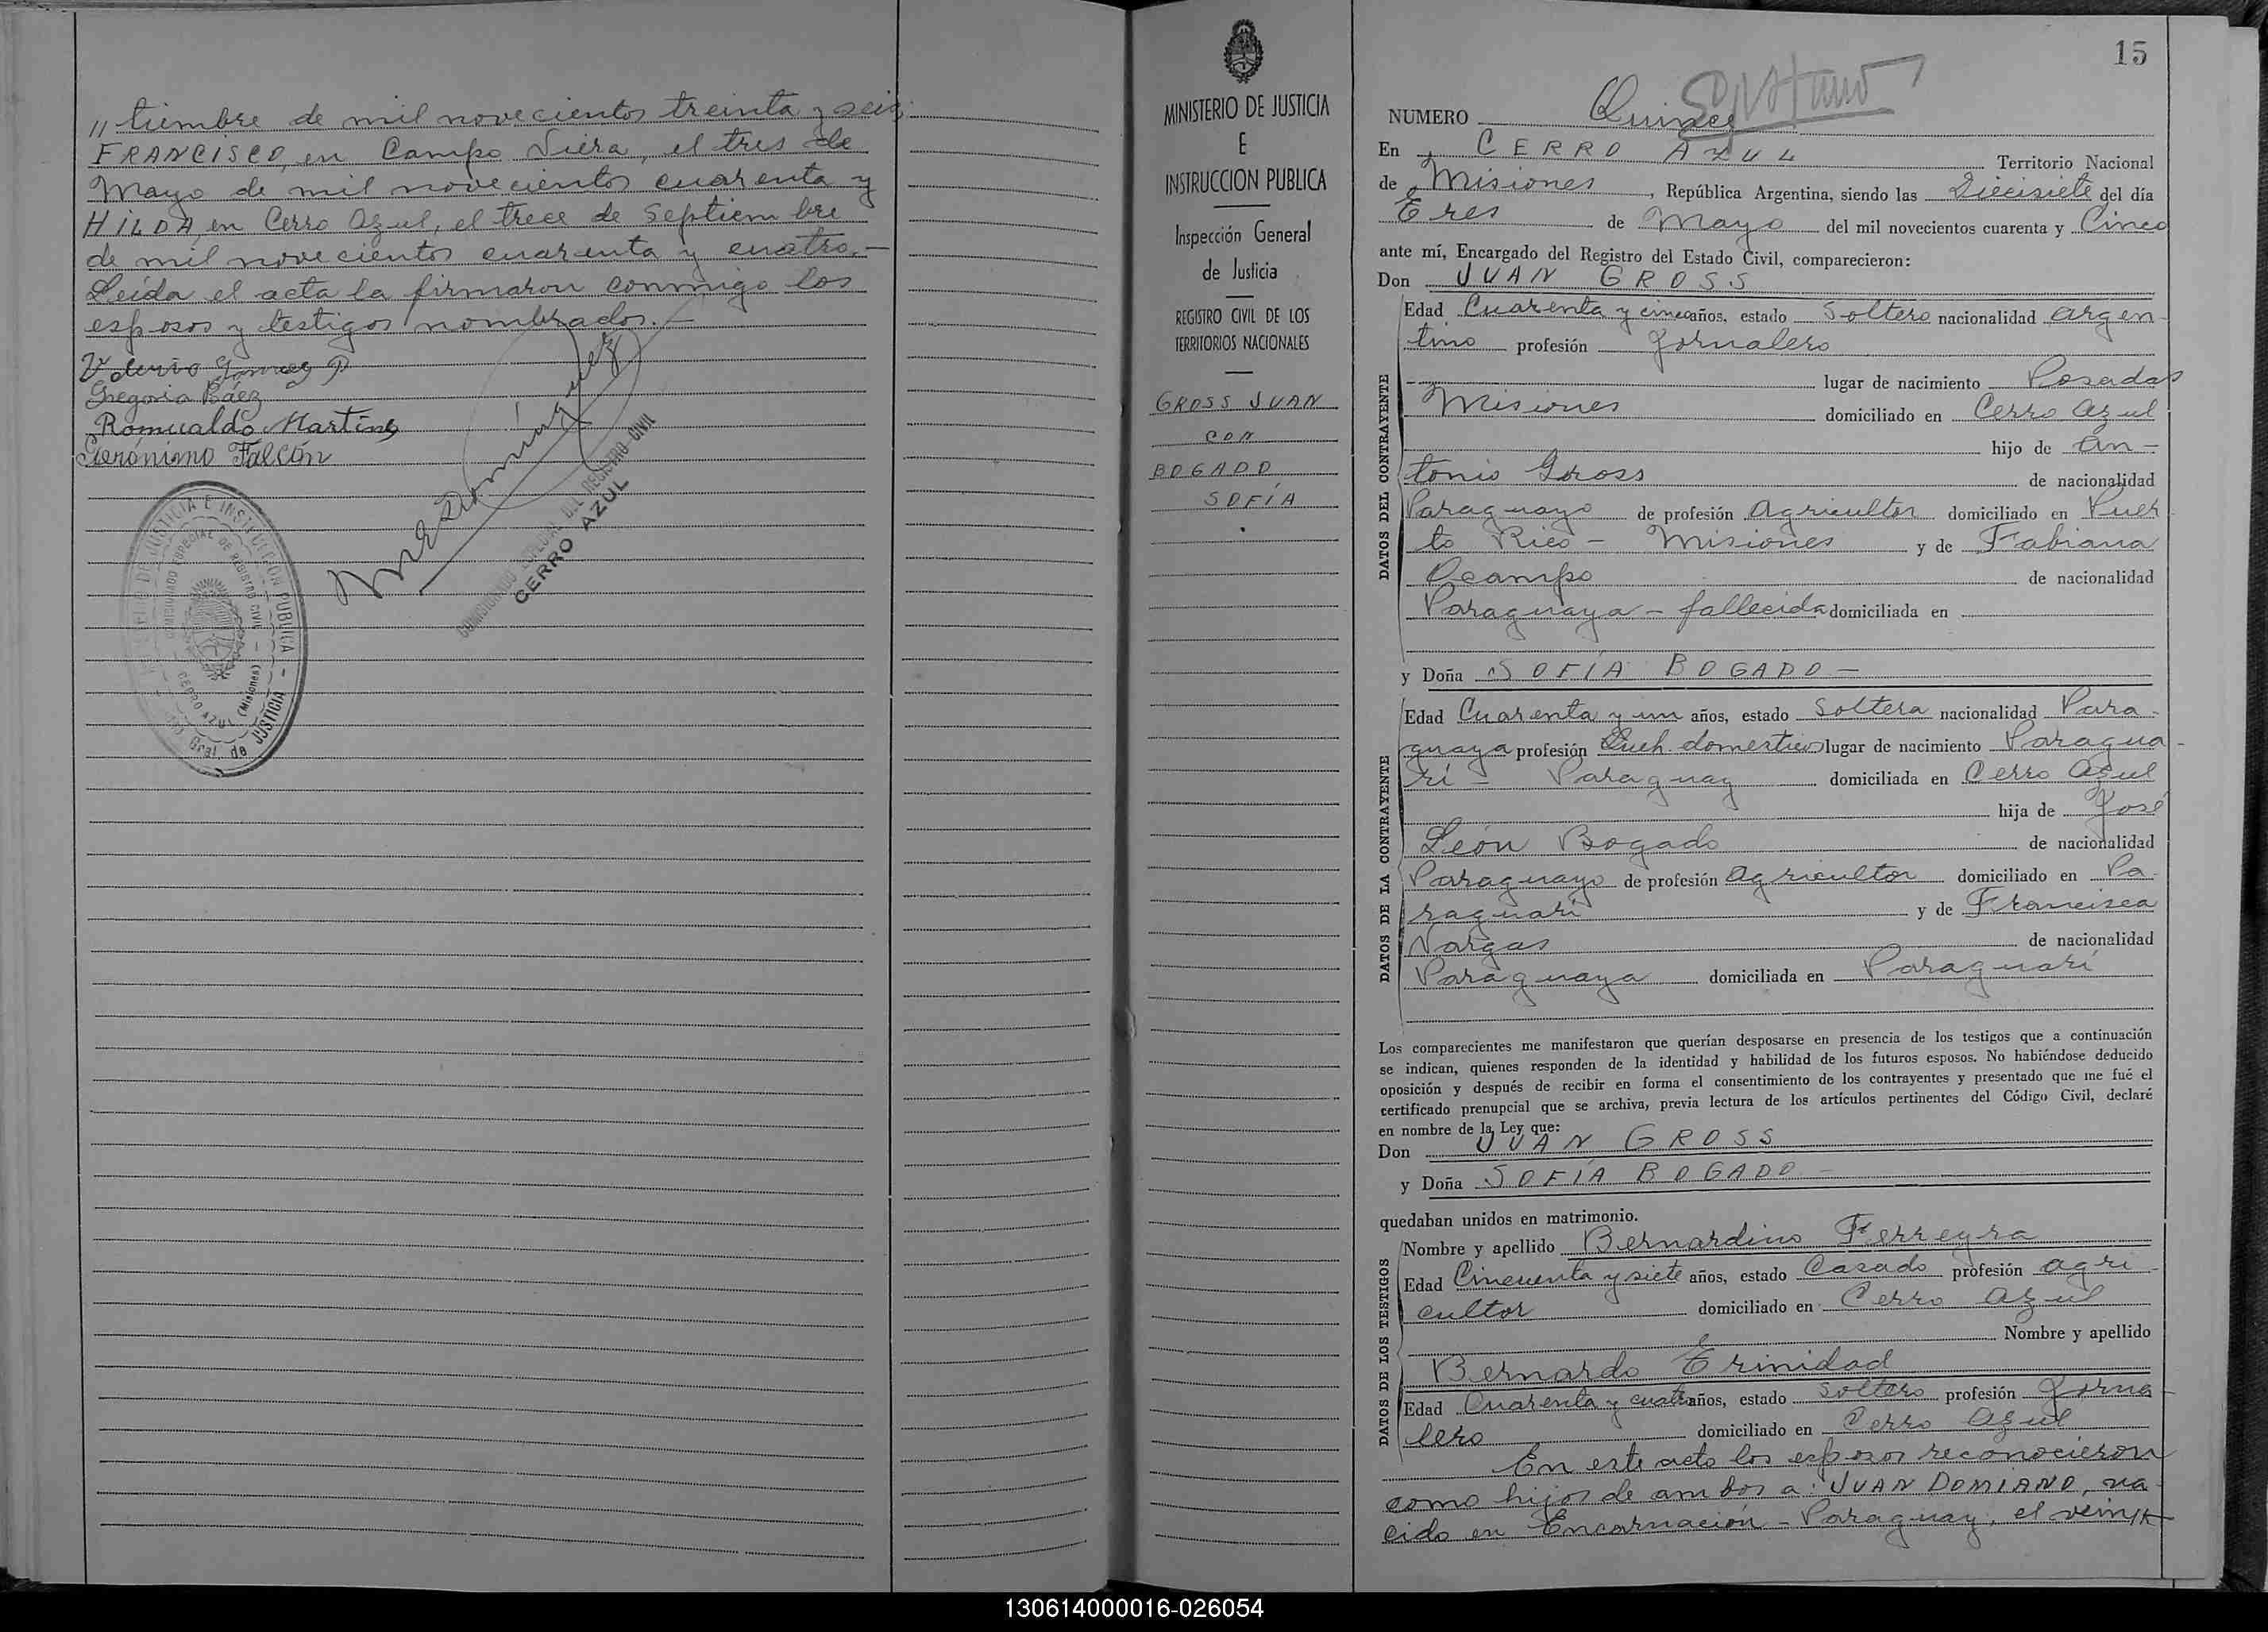 // tiembre de mil novecientos treinta y seis,
FRANCISCO, en Campo Viera, el tres de
Mayo de mil novecientos cuarenta y
HILDA, en Cerro Azul, el trece de Septiembre
de mil novecientos cuarenta y cuatro.—
Leída el acta la firmaron conmigo los
esposos y testigos nombrados.—
Gregoria Báez
Romualdo Martins
Gerónimo Falcón
COMISIONADO ESPECIAL DEL REGISTRO CIVIL
CERRO AZUL
JUSTICIA E INSTRUCCION PUBLICA
COMISIONADO ESPECIAL DE REGISTRO CIVIL
CERRO AZUL (Misiones)
Gral de JUSTICIA
MINISTERIO DE JUSTICIA
E
INSTRUCCION PUBLICA
Inspección General
de Justicia
REGISTRO CIVIL DE LOS
TERRITORIOS NACIONALES
GROSS JUAN
CON
BOGADO
SOFÍA
15
NUMERO Quince
En CERRO AZUL Territorio Nacional
de Misiones, República Argentina, siendo las Diecisiete del día
Tres de Mayo del mil novecientos cuarenta y Cinco
ante mí, Encargado del Registro del Estado Civil, comparecieron:
Don JUAN GROSS
DATOS DEL CONTRAYENTE
Edad Cuarenta y cinco años, estado Soltero nacionalidad Argen
tino profesión Jornalero
lugar de nacimiento Posadas
Misiones domiciliado en Cerro Azul
hijo de An-
tonio Gross de nacionalidad
Paraguayo de profesión Agricultor domiciliado en Puer
to Rico - Misiones y de Fabiana
Ocampo de nacionalidad
Paraguaya - fallecida domiciliada en
y Doña SOFÍA BOGADO —
DATOS DE LA CONTRAYENTE
Edad Cuarenta y un años, estado Soltera nacionalidad Para-
guaya profesión Queh. domesticos lugar de nacimiento Paragua-
rí - Paraguay domiciliada en Cerro Azul
hija de José
León Bogado de nacionalidad
Paraguayo de profesión Agricultor domiciliado en Pa-
raguarí y de Francisca
Vargas de nacionalidad
Paraguaya domiciliada en Paraguarí
Los comparecientes me manifestaron que querían desposarse en presencia de los testigos que a continuación
se indican, quienes responden de la identidad y habilidad de los futuros esposos. No habiéndose deducido
oposición y después de recibir en forma el consentimiento de los contrayentes y presentado que me fué el
certificado prenupcial que se archiva, previa lectura de los artículos pertinentes del Código Civil, declaré
en nombre de la Ley que:
Don JUAN GROSS
y Doña SOFÍA BOGADO —
quedaban unidos en matrimonio.
DATOS DE LOS TESTIGOS
Nombre y apellido Bernardino Ferreyra
Edad Cincuenta y siete años, estado Casado profesión agri-
cultor domiciliado en Cerro Azul
Nombre y apellido
Bernardo Trinidad
Edad Cuarenta y cuatro años, estado soltero profesión Jorna-
lero domiciliado en Cerro Azul
En este acto los esposos reconocieron
como hijos de ambos a: JUAN DOMIANO, na-
cido en Encarnación - Paraguay, el veinti
130614000016-026054